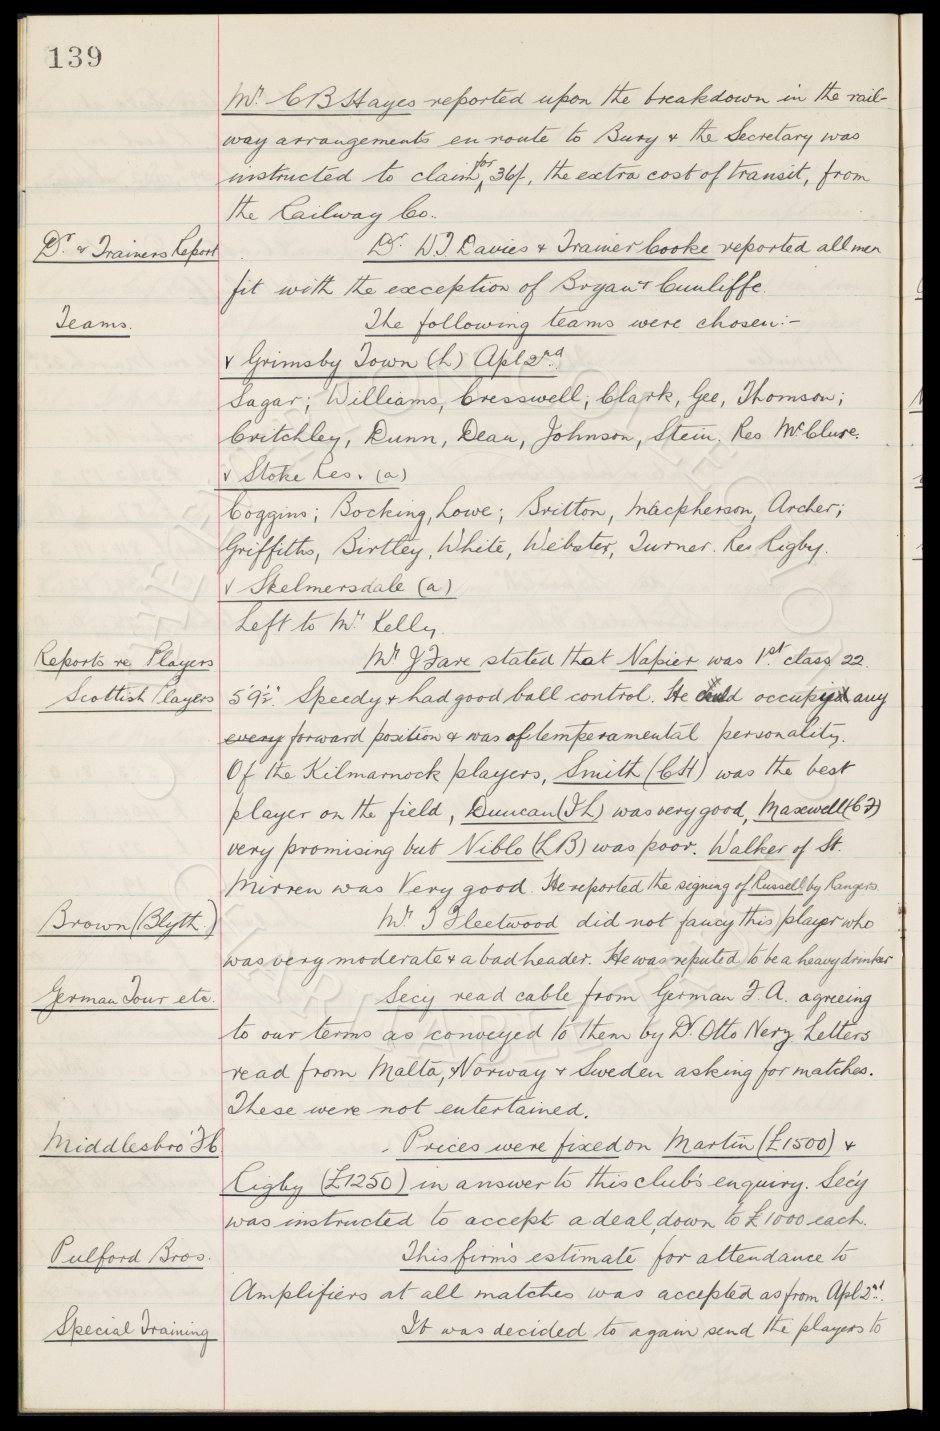 139
Mr. C B Hayes reported upon the breakdown in the rail-
way arrangements en route to Bury & the Secretary was
instructed to claim for 36/-, the extra cost of transit, from
the Railway Co..
Dr. & Trainers Report
Dr. W J Davies & Trainer Cooke reported all men
fit with the exception of Bryan & Cunliffe.
Teams.
The following teams were chosen:-
v Grimsby Town (h) Apl 2nd.
Sagar; Williams, Cresswell; Clark, Gee, Thomson;
Critchley, Dunn, Dean, Johnson, Stein. Res McClure.
v Stoke Res. (a)
Coggins; Bocking, Lowe; Britton, Macpherson, Archer;
Griffiths, Birtley, White, Webster, Turner. Res Rigby.
v Skelmersdale (a)
Left to Mr. Kelly.
Reports re Players
Mr J Fare stated that Napier was 1st. class, 22.
Scottish Players
5'9½". Speedy & had good ball control. He could occupy any
every forward position & was of temperamental personality.
Of the Kilmarnock players, Smith (CH) was the best
player on the field, Duncan (IL) was very good, Maxwell (CF)
very promising but Niblo (LB) was poor. Walker of St.
Mirren was Very good. He reported the signing of Russell by Rangers.
Brown (Blyth.)
Mr. T Fleetwood did not fancy this player who
was very moderate & a bad header. He was reputed to be a heavy drinker
German Tour etc.
Secy read cable from German F.A. agreeing
to our terms as conveyed to them by Dr. Otto Nerz. Letters
read from Malta, Norway & Sweden asking for matches.
These were not entertained.
Middlesbro' Fb
Prices were fixed on Martin (£1500) &
Rigby (£1250) in answer to this club's enquiry. Sec'y
was instructed to accept a deal, down to £1000 each.
Pulford Bros.
This firm's estimate for attendance to
Amplifiers at all matches was accepted as from Apl 2nd.
Special Training
It was decided to again send the players to